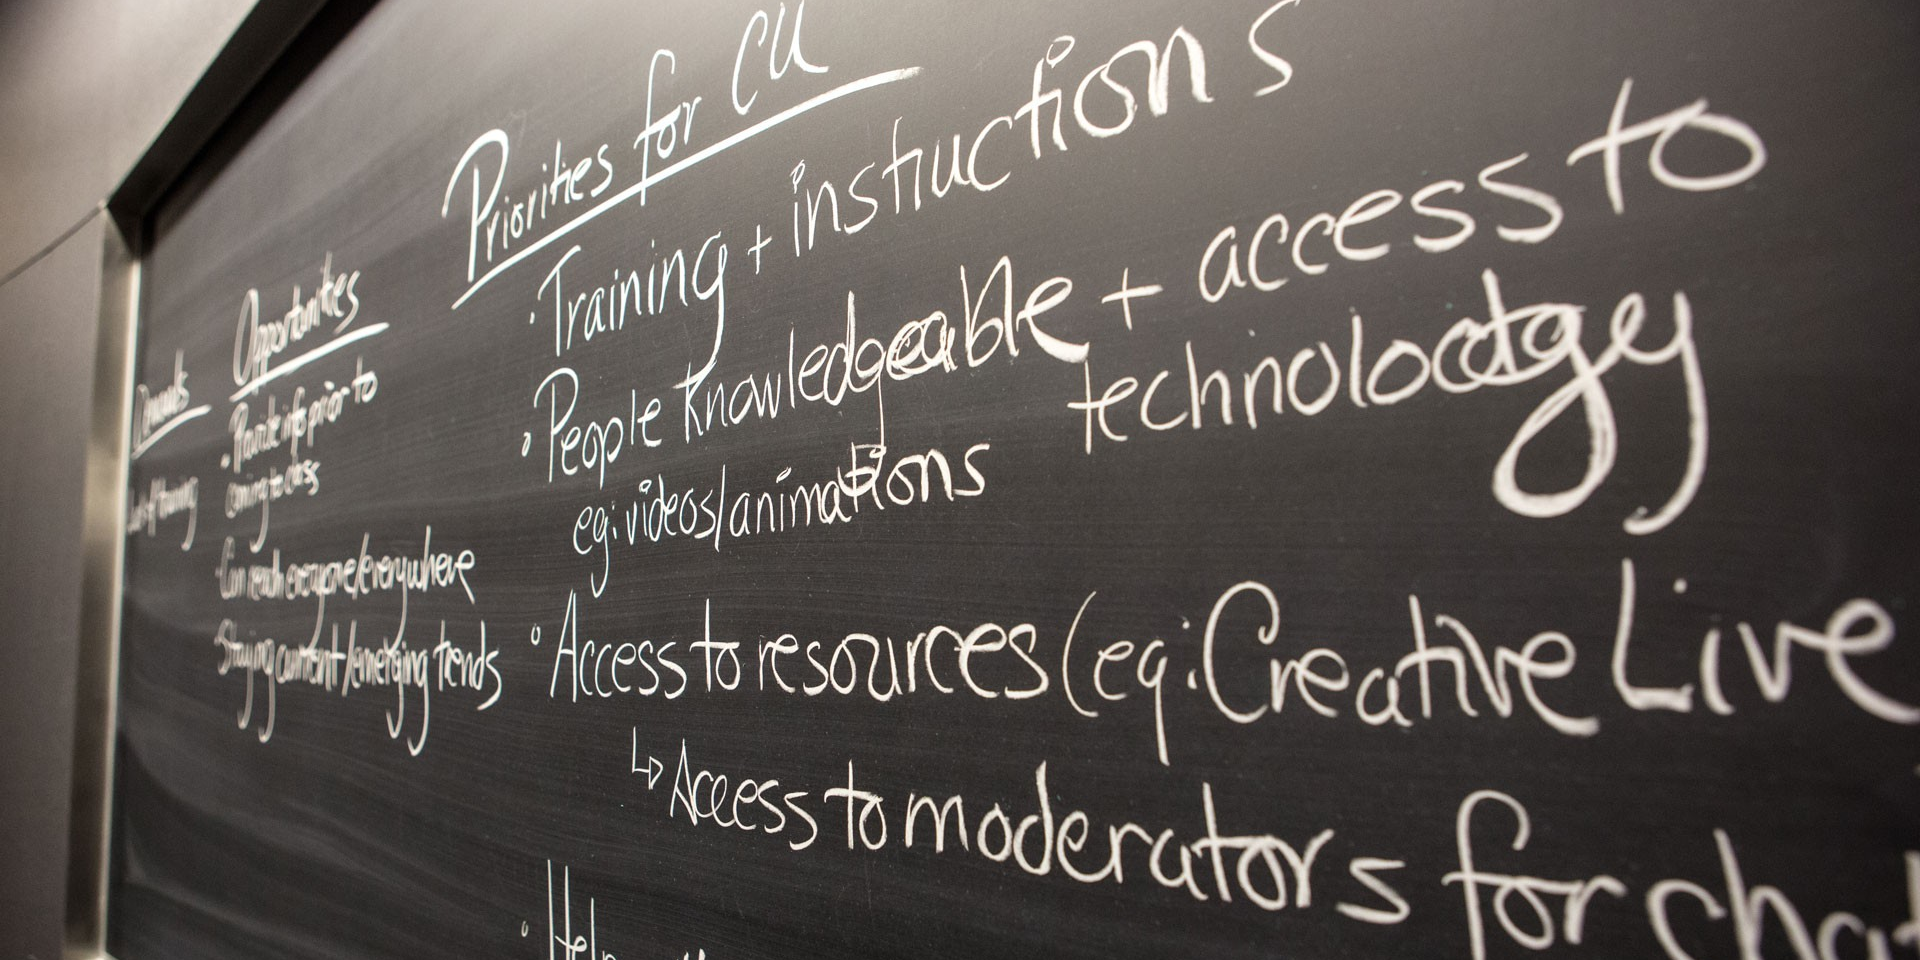 Demands
Lack of training
Opportunities
• Provide info prior to
coming to class
• Can reach everyone/everywhere
• Staying current/emerging trends
Priorities for CU
• Training + instructions
• People knowledgeable + access to
technology
eg: videos/animations
• Access to resources (eg: Creative Live
↳ Access to moderators for chat
• Help